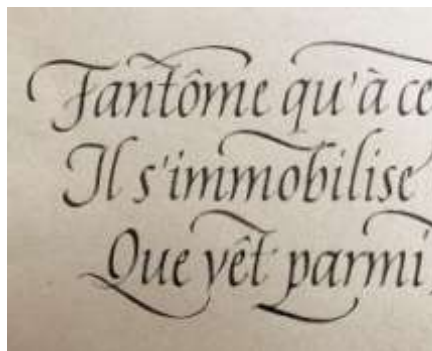 Fantôme qu'à ce
Il s'immobilise
Que vêt parmi